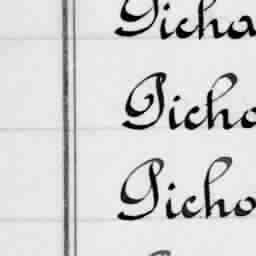 Picha
Picho
Picho